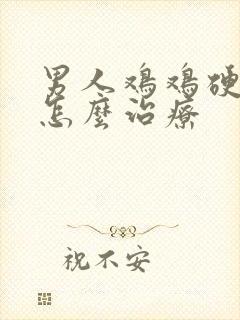 男人鸡鸡硬
怎麼治療
祝不安